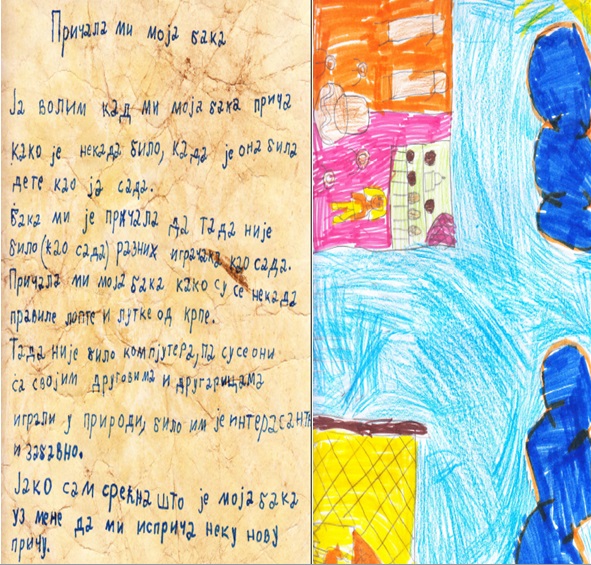 Причала ми моја бака
Ја волим кад ми моја бака прича
како је некада било, када је она била
дете као ја сада.
Бака ми је причала да тада није
било (као сада) разних играчака као сада.
Причала ми моја бака како су се некада
правиле лопте и лутке од крпе.
Тада није било компјутера, па су се они
са својим друговима и другарицама
играли у природи, било им је интерасантн
и забавно.
Јако сам срећна што је моја бака
уз мене да ми исприча неку нову
причу.